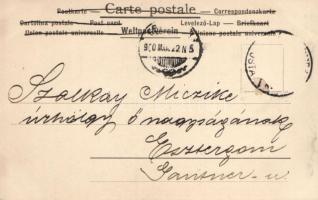 Postkarte — Carte postale — Correspondenzkarte
Cartolina postale — Post card — Levelező-Lap — Briefkaart
Union postale universelle — Weltpostverein — Unione postale universale
Szalkay Miczike
úrhölgy ő nagyságának
Esztergom